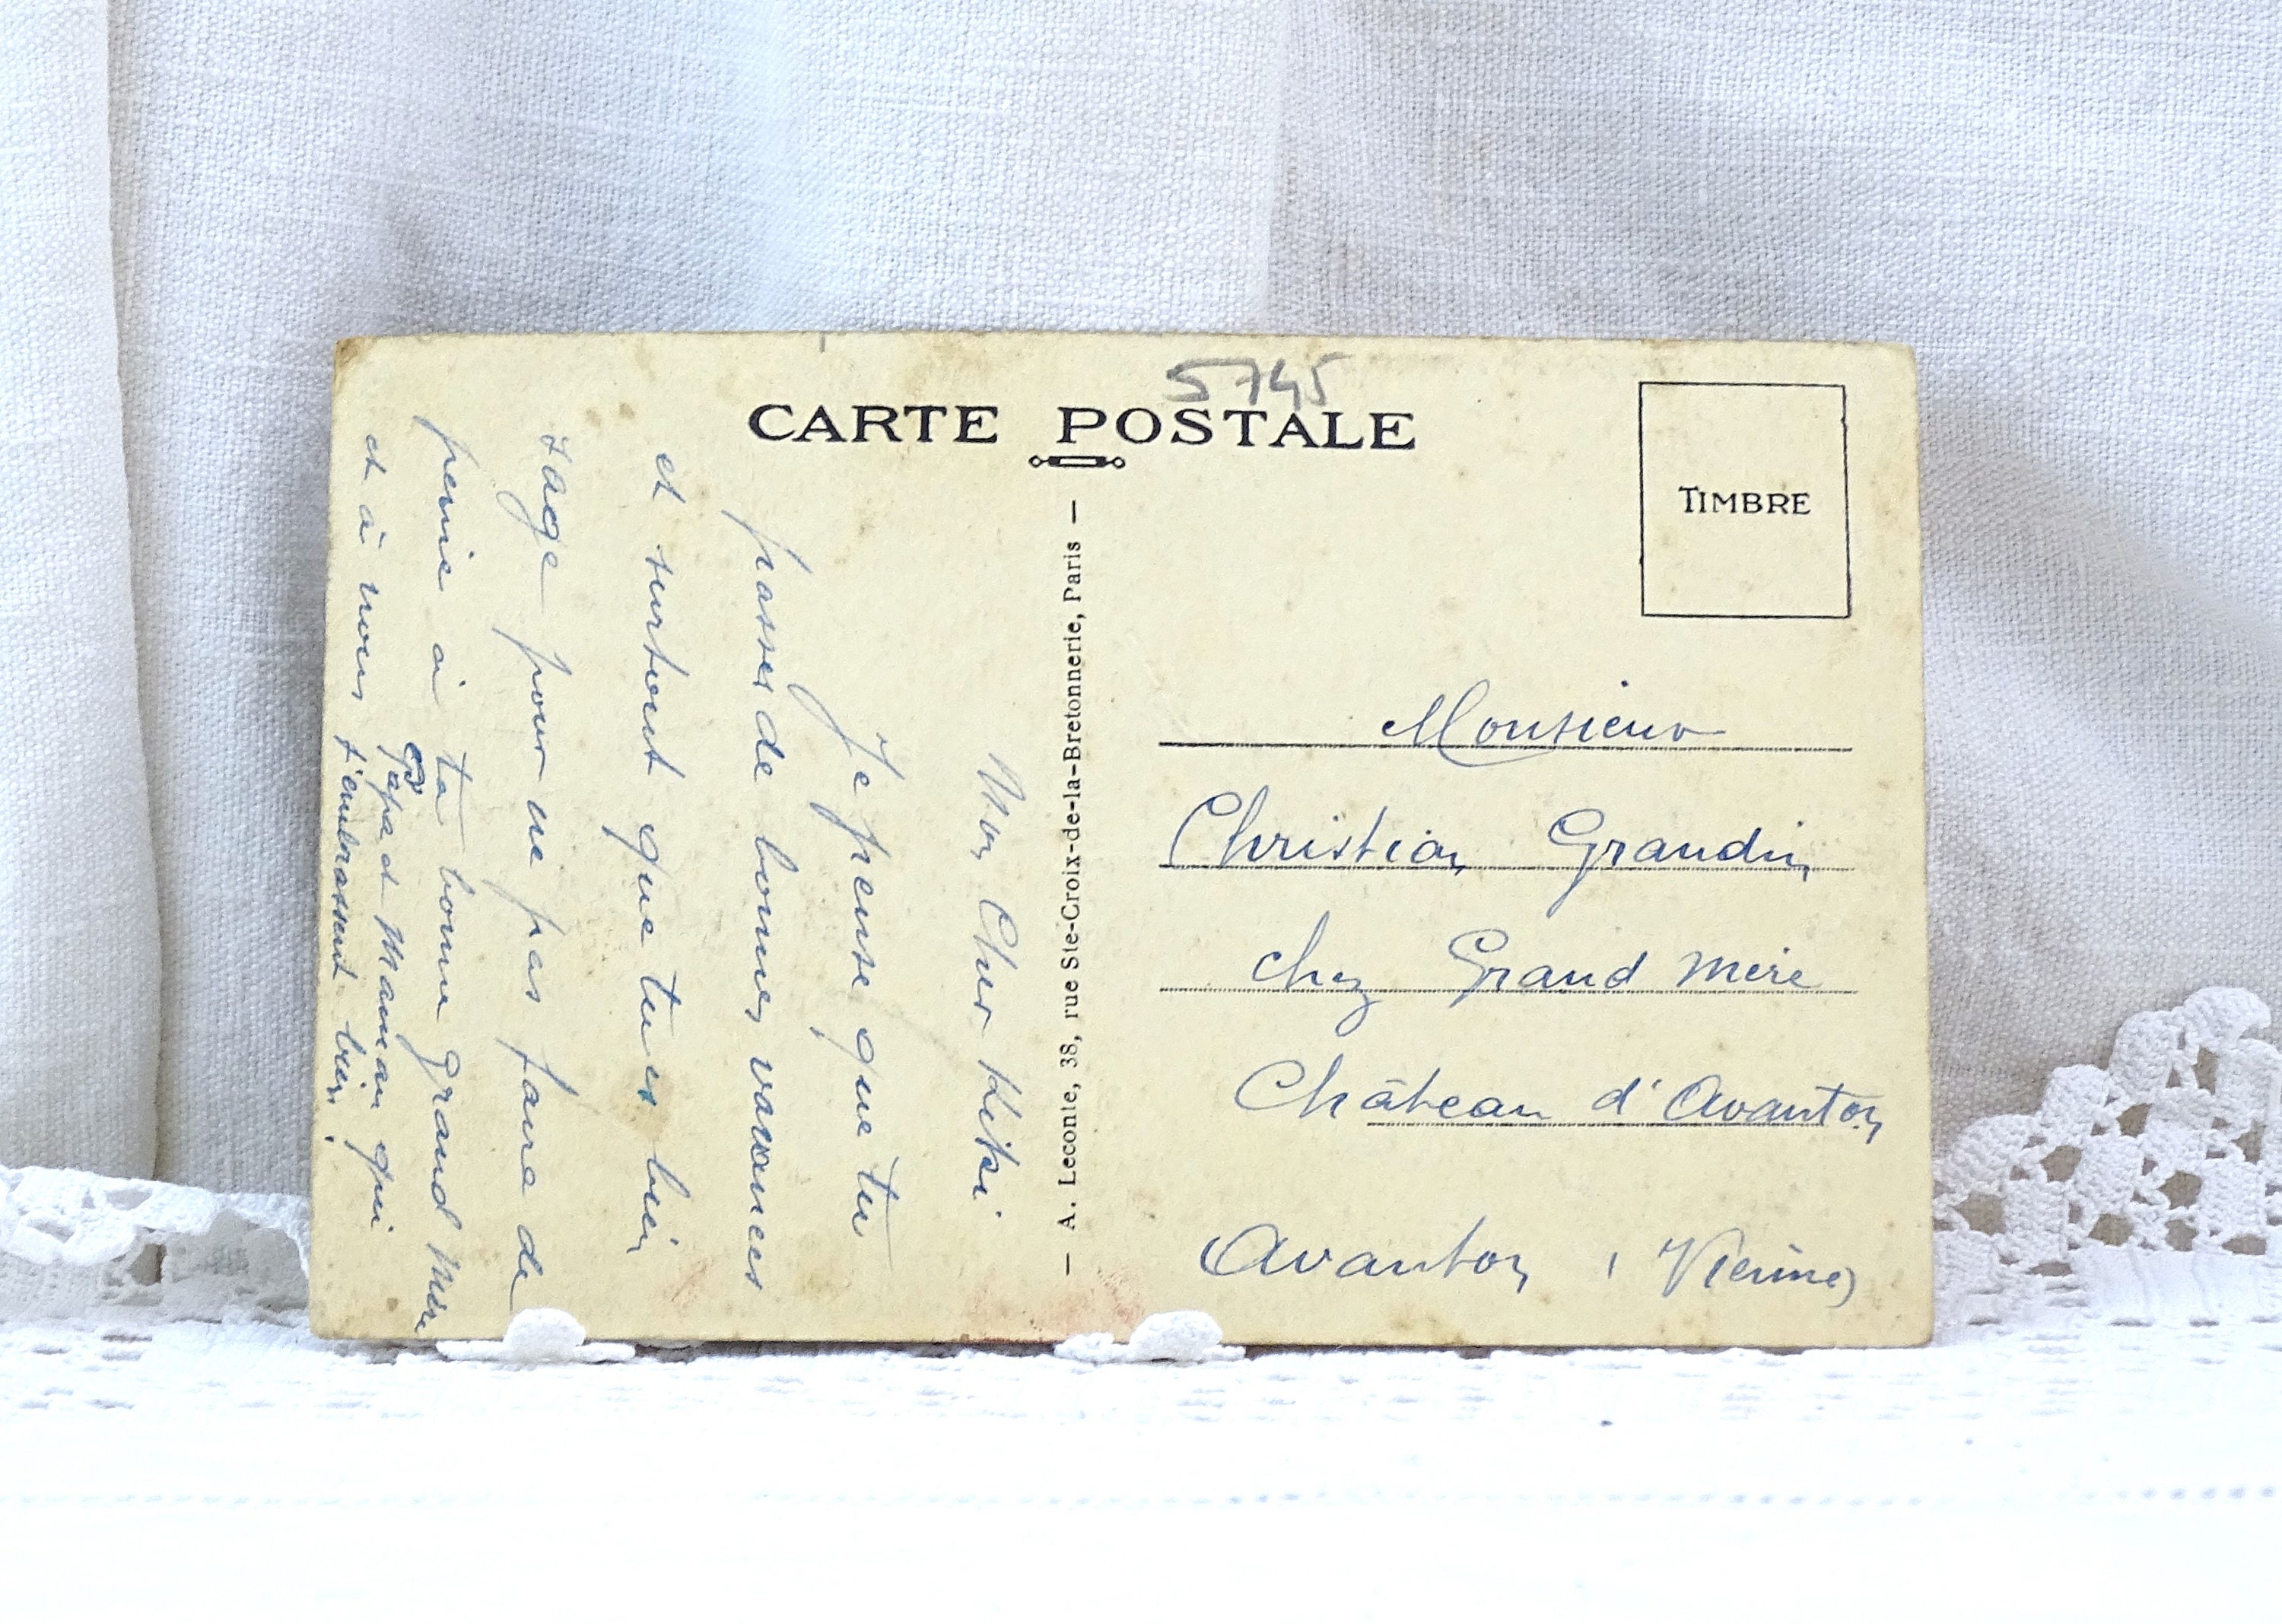 5745
CARTE POSTALE
TIMBRE
Mon Cher Kiki
Je pense que tu
passes de bonnes vacances
et surtout que tu es bien
sage pour ne pas faire de
peine à ta bonne grand Mère
et à nous
Papa et Maman qui
t'embrassent bien.
— A. Leconte, 38, rue Ste-Croix-de-la-Bretonnerie, Paris —
Monsieur
Christian Grandin
chez Grand Mère
Château d'Avanton
Avanton (Vienne)